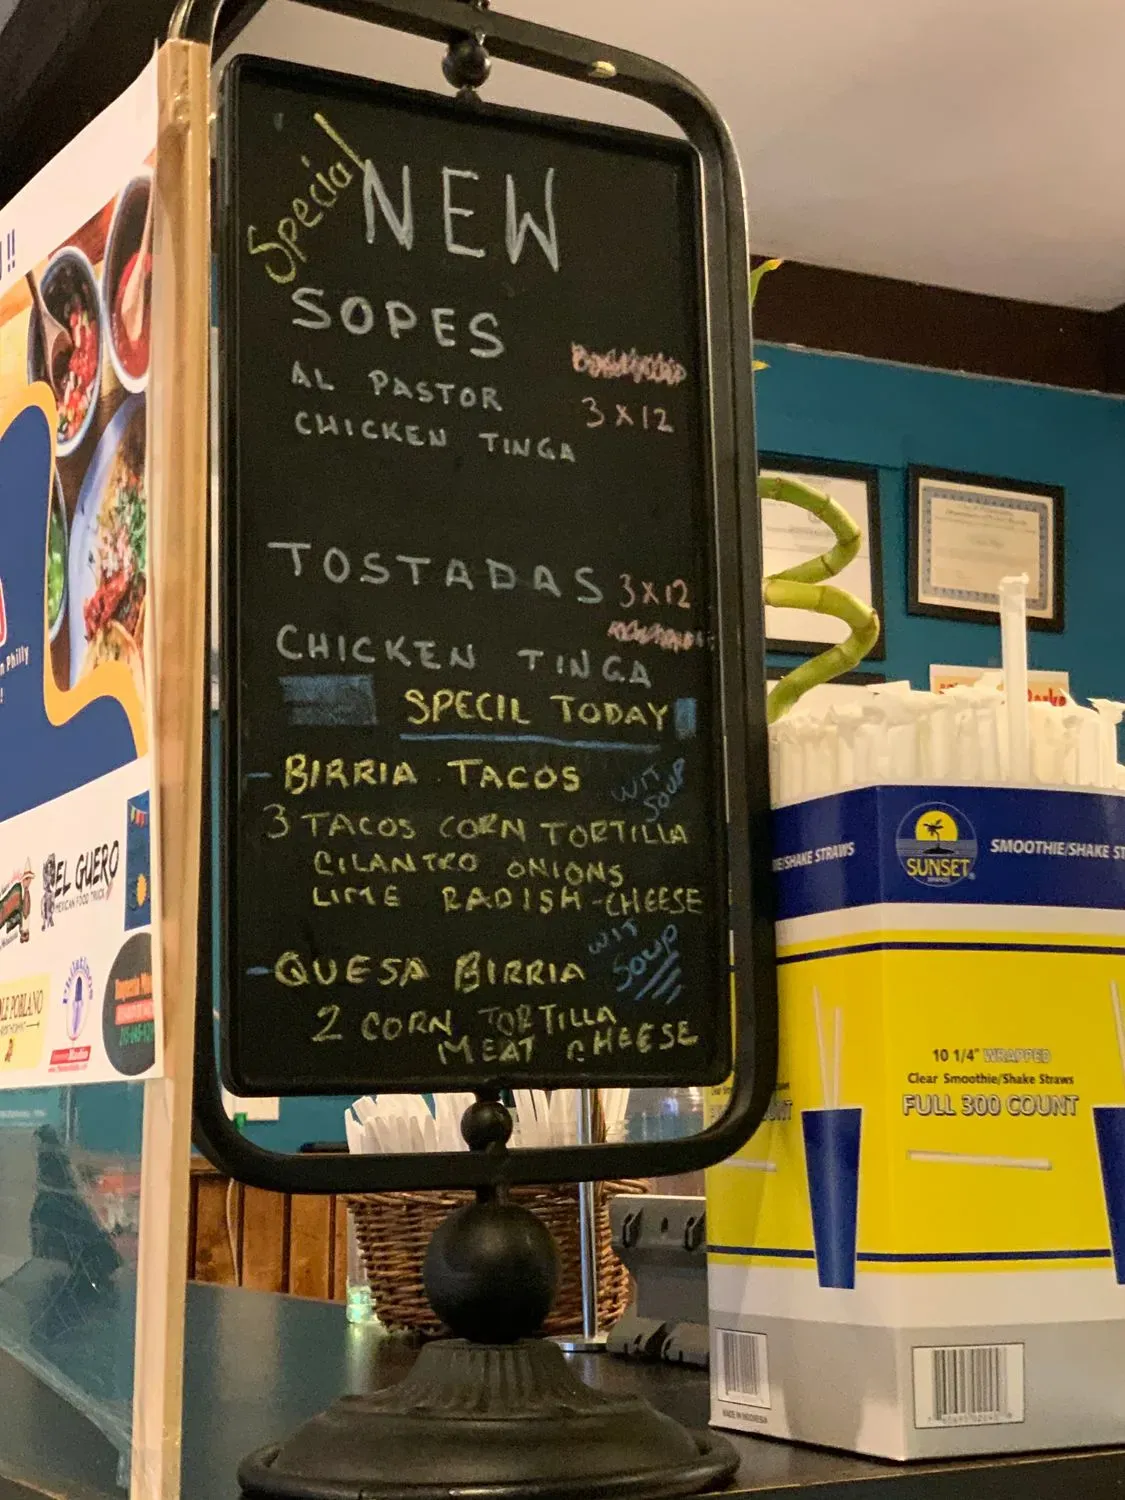 Special
NEW
SOPES
AL PASTOR
3 X 12
CHICKEN TINGA
TOSTADAS 3 X 12
CHICKEN TINGA
SPECIL TODAY
- BIRRIA TACOS WIT SOUP
3 TACOS CORN TORTILLA
CILANTRO ONIONS
LIME RADISH-CHEESE
- QUESA BIRRIA WIT SOUP
2 CORN TORTILLA
MEAT CHEESE
!!
n Philly
!
EL GUERO
MEXICAN FOOD TRUCK
LE POBLANO
E/SHAKE STRAWS
SUNSET
SMOOTHIE/SHAKE ST
10 1/4" WRAPPED
Clear Smoothie/Shake Straws
FULL 300 COUNT
MADE IN INDONESIA